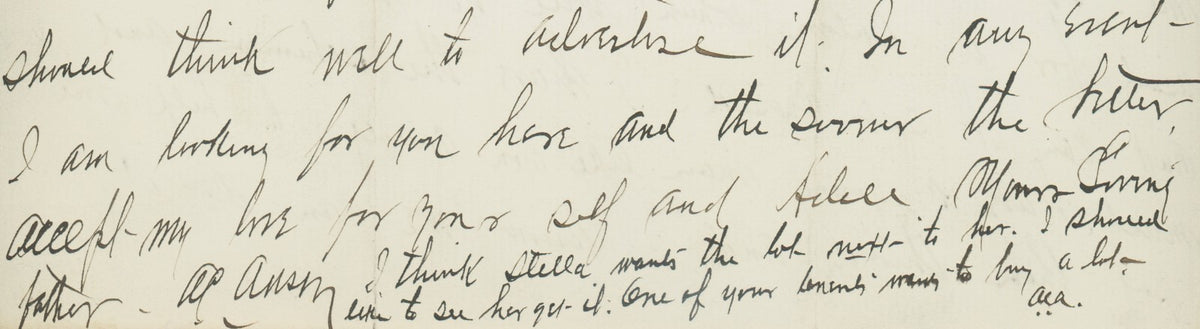 should think well to advertise it. In any event-
I am looking for you here and the sooner the better,
accept my love for your self and Adele Yours Loving
father. AC Anson I think Stella wants the lot next to her. I should
like to see her get it. One of your tenants wants to buy a lot.
aca.